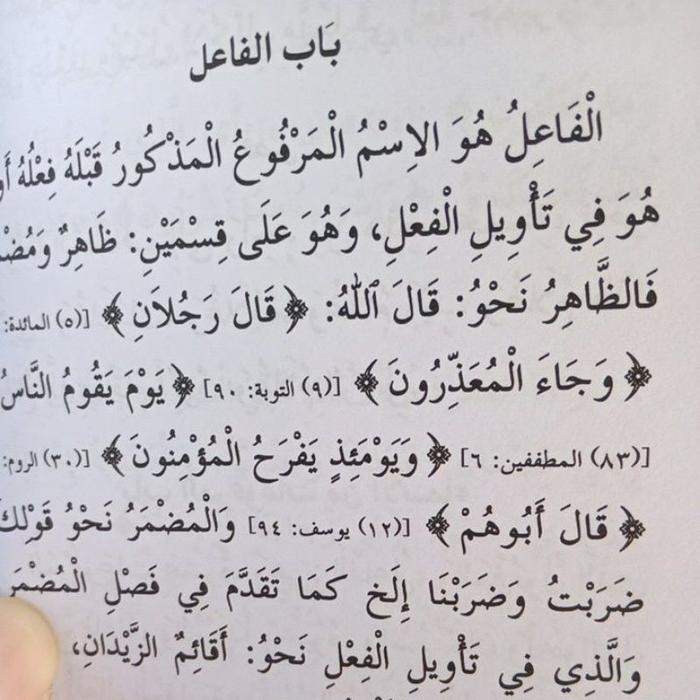 بَاب الفاعل
الْفَاعِلُ هُوَ الاِسْمُ الْمَرْفُوعُ الْمَذْكُورُ قَبْلَهُ فِعْلُهُ
هُوَ فِي تَأْوِيلِ الْفِعْلِ، وَهُوَ عَلَى قِسْمَيْنِ: ظَاهِرٌ
فَالظَّاهِرُ نَحْوُ: قَالَ ٱللهُ: ﴿قَالَ رَجُلاَنِ﴾ [(٥) المائدة:
﴿وَجَاءَ الْمُعَذِّرُونَ﴾ [(٩) التوبة: ٩٠] ﴿يَوْمَ يَقُومُ النَّاسُ
[(٨٣) المطففين: ٦] ﴿وَيَوْمَئِذٍ يَفْرَحُ الْمُؤْمِنُونَ﴾ [(٣٠) الروم:
﴿قَالَ أَبُوهُمْ﴾ [(١٢) يوسف: ٩٤] وَالْمُضْمَرُ نَحْوُ قَوْلِكَ
ضَرَبْتُ وَضَرَبْنَا إِلَخ كَمَا تَقَدَّمَ فِي فَصْلِ الْمُضْمَرِ
وَالَّذِي فِي تَأْوِيلِ الْفِعْلِ نَحْوُ: أَقَائِمٌ الزَّيْدَانِ،